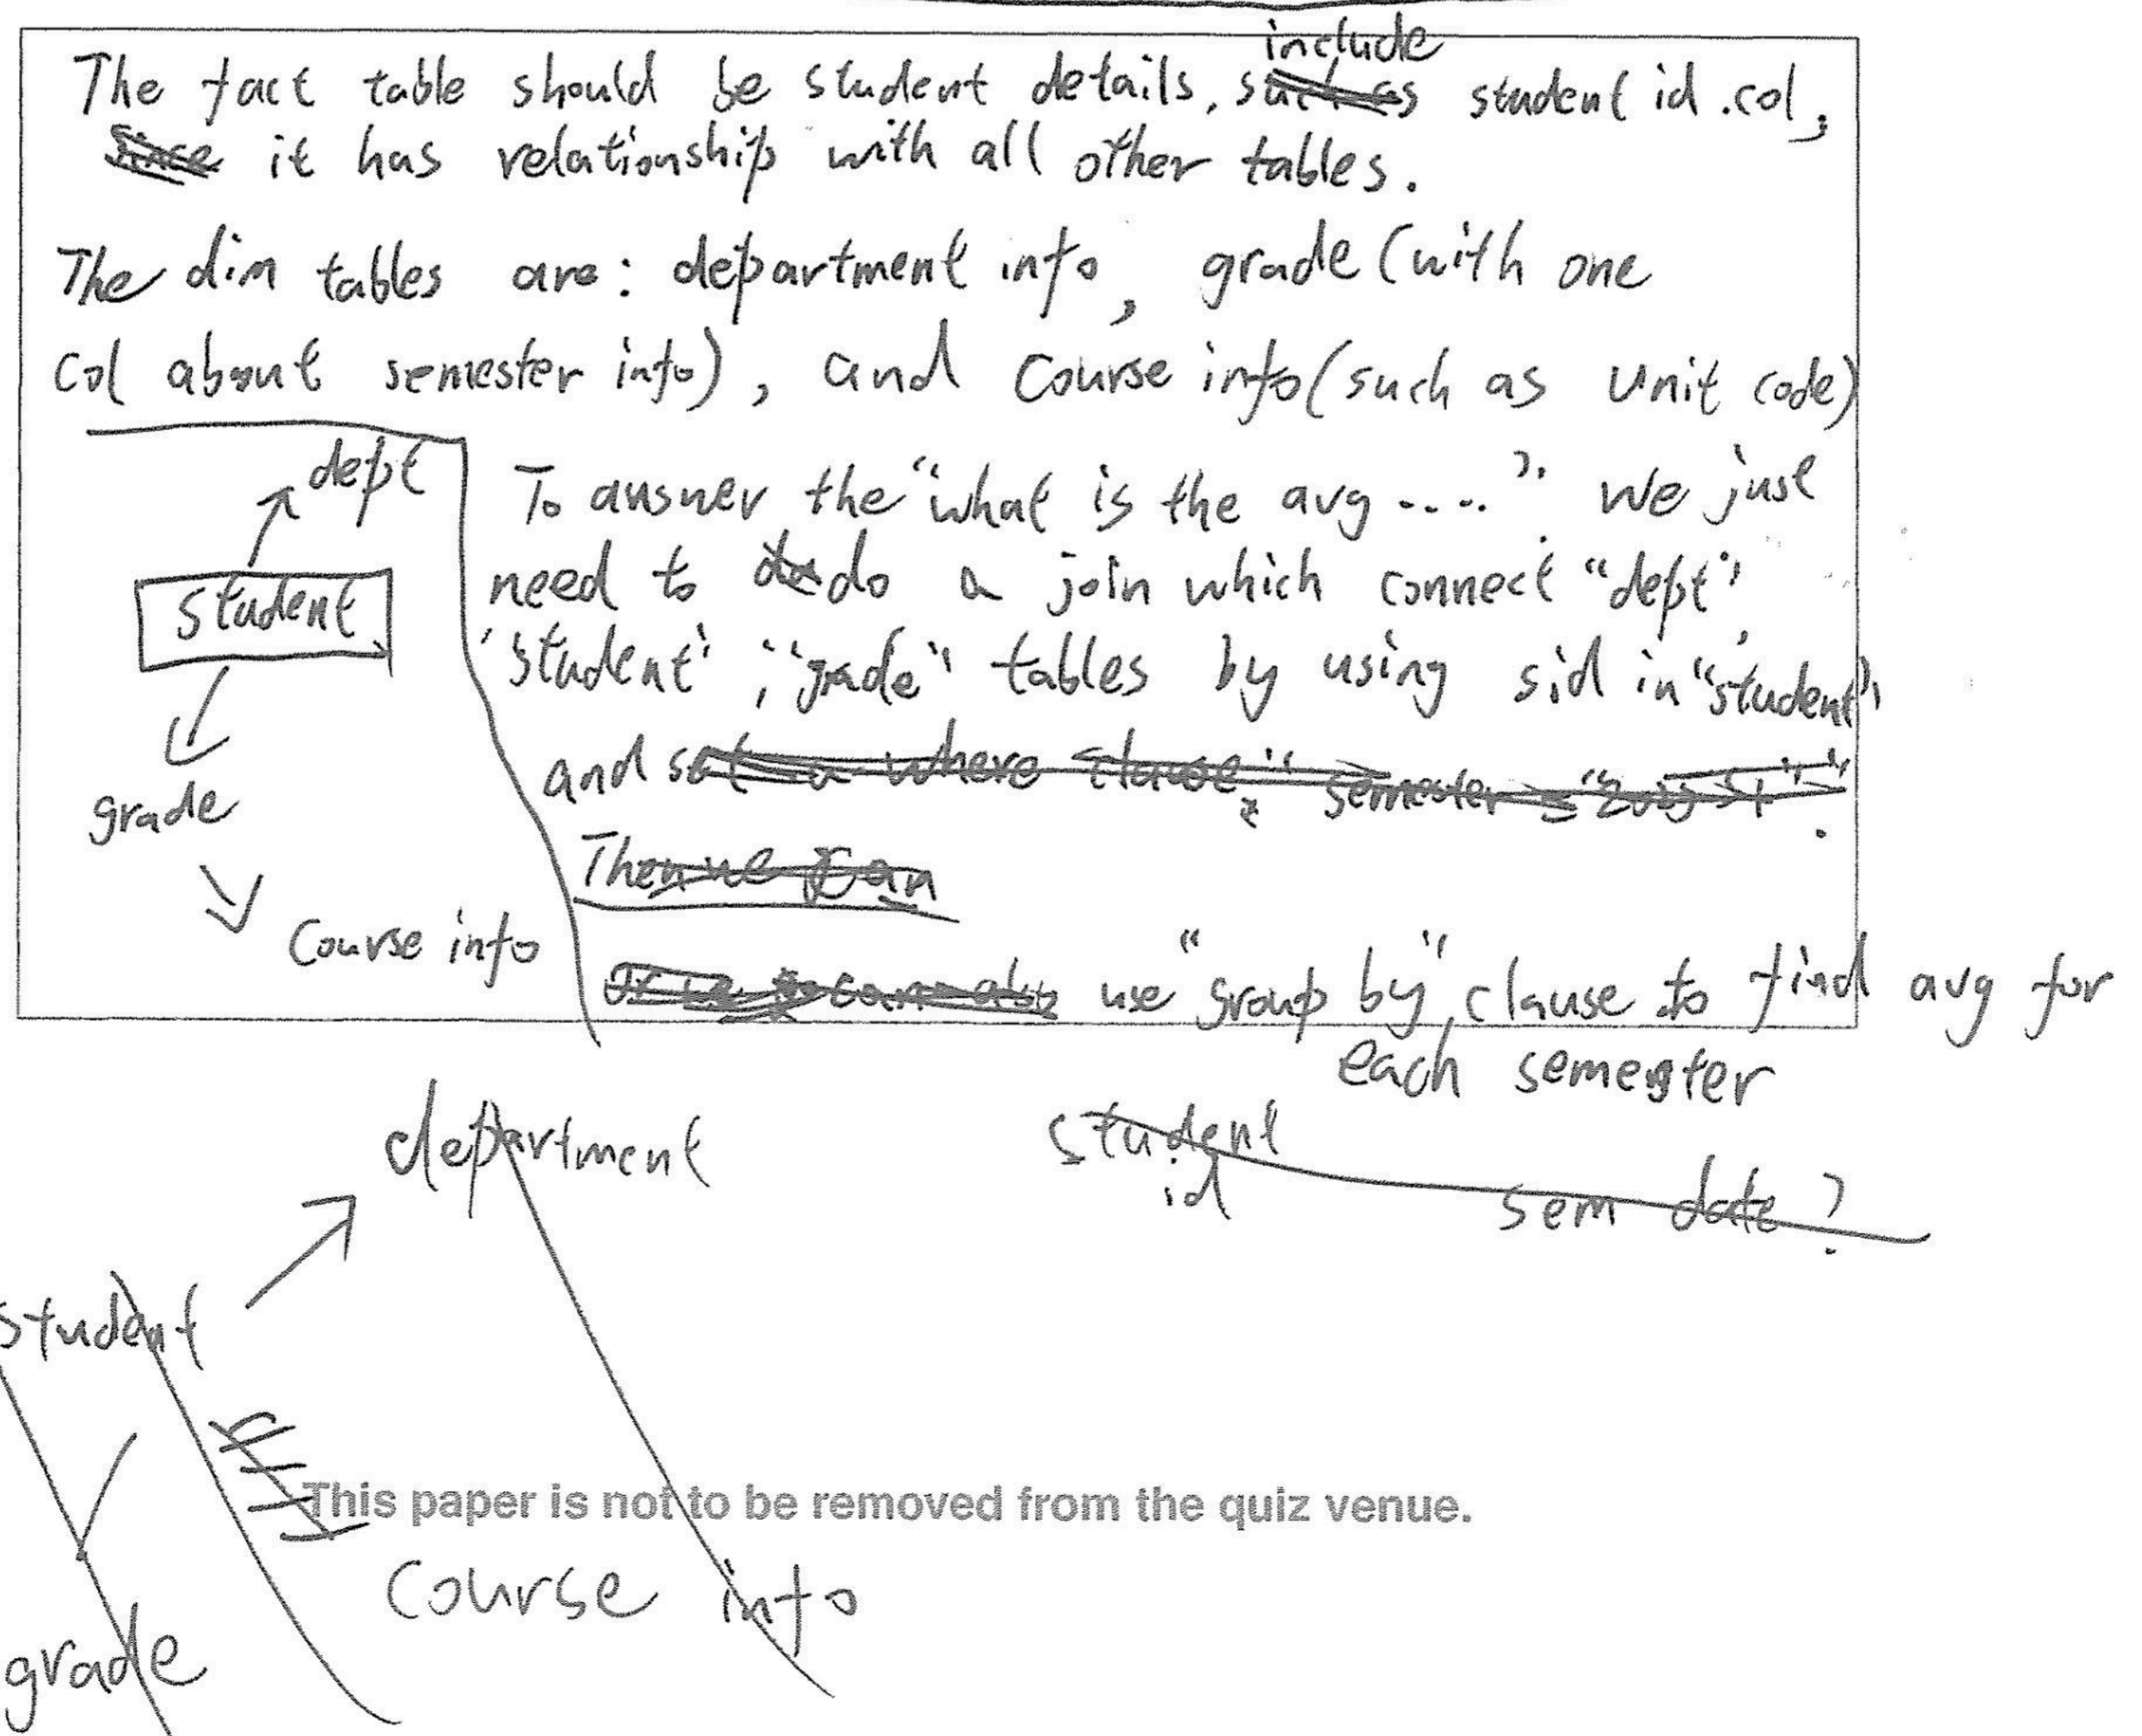 include
The fact table should be student details, such as student id .col,
since it has relationship with all other tables.
The dim tables are: department info, grade (with one
col about semester info), and course info (such as Unit code)
dept
student
grade
Course info
To answer the "what is the avg ....". We just
need to do a join which connect "dept",
'student', "grade" tables by using sid in "student",
and set a where clause, "semester = "
Then we can
use "group by" clause to find avg for
each semester
department
student
id
sem date?
student
This paper is not to be removed from the quiz venue.
course info
grade